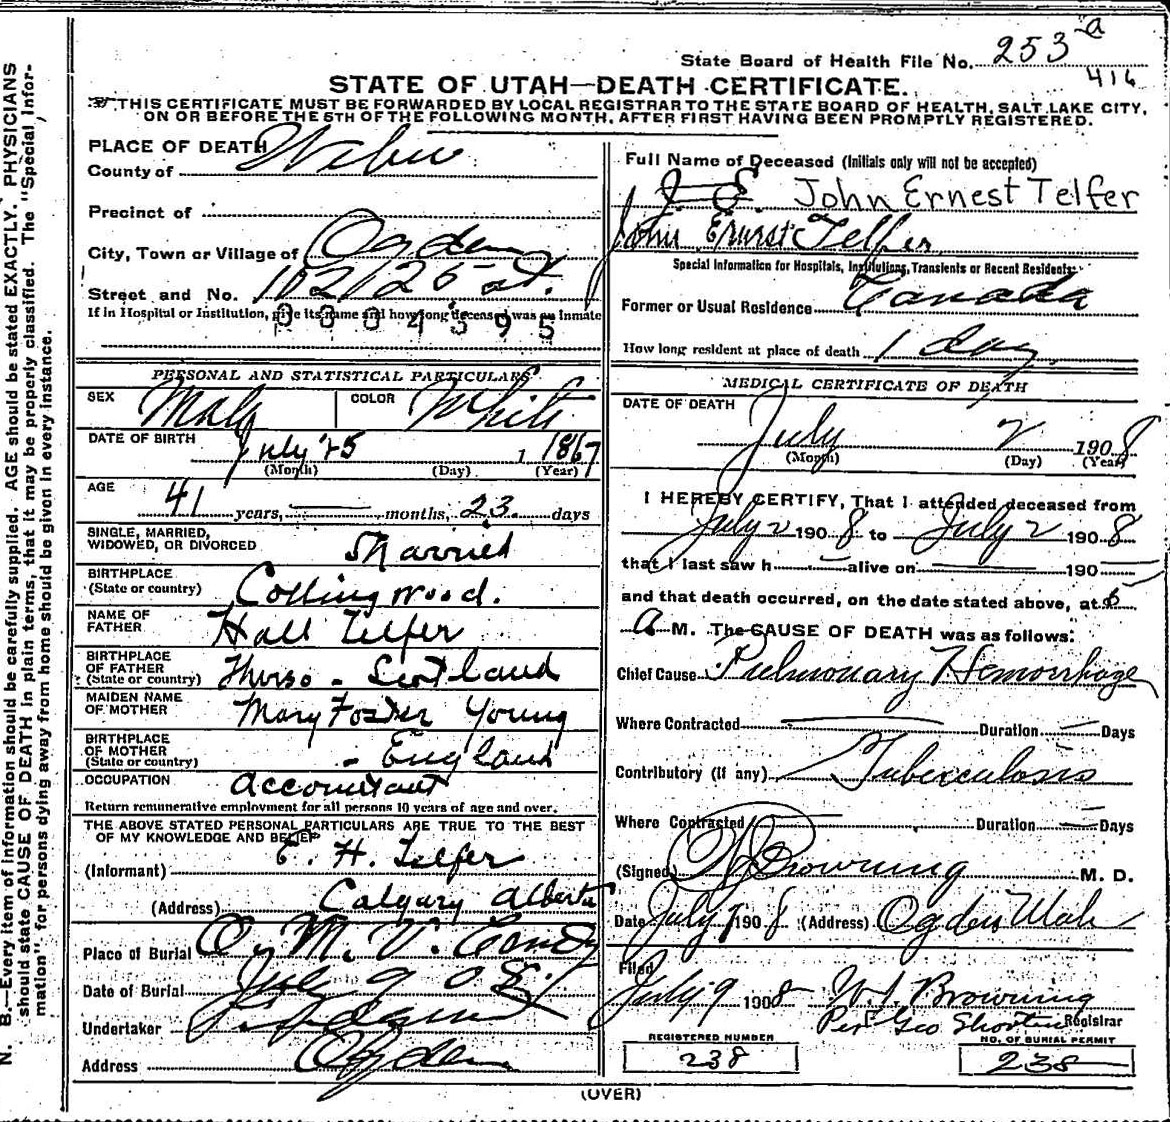 State Board of Health File No. 253 a
416
STATE OF UTAH—DEATH CERTIFICATE.
THIS CERTIFICATE MUST BE FORWARDED BY LOCAL REGISTRAR TO THE STATE BOARD OF HEALTH, SALT LAKE CITY,
ON OR BEFORE THE 5TH OF THE FOLLOWING MONTH, AFTER FIRST HAVING BEEN PROMPTLY REGISTERED.
PLACE OF DEATH
County of Weber
Precinct of
City, Town or Village of Ogden
Street and No. 102/25 st.
If in Hospital or Institution, give its name and how long deceased was an inmate
Full Name of Deceased (Initials only will not be accepted)
J. E. John Ernest Telfer
John Ernest Telfer
Special Information for Hospitals, Institutions, Transients or Recent Residents:
Former or Usual Residence Canada
How long resident at place of death 1 day
PERSONAL AND STATISTICAL PARTICULARS
SEX Male COLOR White
DATE OF BIRTH July 25 1 1867
(Month) (Day) (Year)
AGE 41 years, — months, 23 days
SINGLE, MARRIED,
WIDOWED, OR DIVORCED Married
BIRTHPLACE
(State or country) Collingwood.
NAME OF
FATHER Hall Telfer
BIRTHPLACE
OF FATHER
(State or country) Thurso - Scotland
MAIDEN NAME
OF MOTHER Mary Foster Young
BIRTHPLACE
OF MOTHER
(State or country) - England
OCCUPATION Accountant
Return remunerative employment for all persons 10 years of age and over.
THE ABOVE STATED PERSONAL PARTICULARS ARE TRUE TO THE BEST
OF MY KNOWLEDGE AND BELIEF
(Informant) E. H. Telfer
(Address) Calgary Alberta
Place of Burial
Date of Burial
Undertaker
Address Ogden
MEDICAL CERTIFICATE OF DEATH
DATE OF DEATH
July 2 1908
(Month) (Day) (Year)
I HEREBY CERTIFY, That I attended deceased from
July 2 1908 to July 2 1908
that I last saw h — alive on — 190 —
and that death occurred, on the date stated above, at 5
A M. The CAUSE OF DEATH was as follows:
Chief Cause Pulmonary Hemorrhage
Where Contracted — Duration — Days
Contributory (if any) Tuberculosis
Where Contracted — Duration — Days
(Signed) Browning M. D.
Date July 1908 (Address) Ogden Utah
Filed
July 9 1908 W. J. Browning
Per Geo Shorten Registrar
REGISTERED NUMBER
238
NO. OF BURIAL PERMIT
238
(OVER)
N. B.—Every item of information should be carefully supplied. AGE should be stated EXACTLY. PHYSICIANS
should state CAUSE OF DEATH in plain terms, that it may be properly classified. The "Special Infor-
mation" for persons dying away from home should be given in every instance.